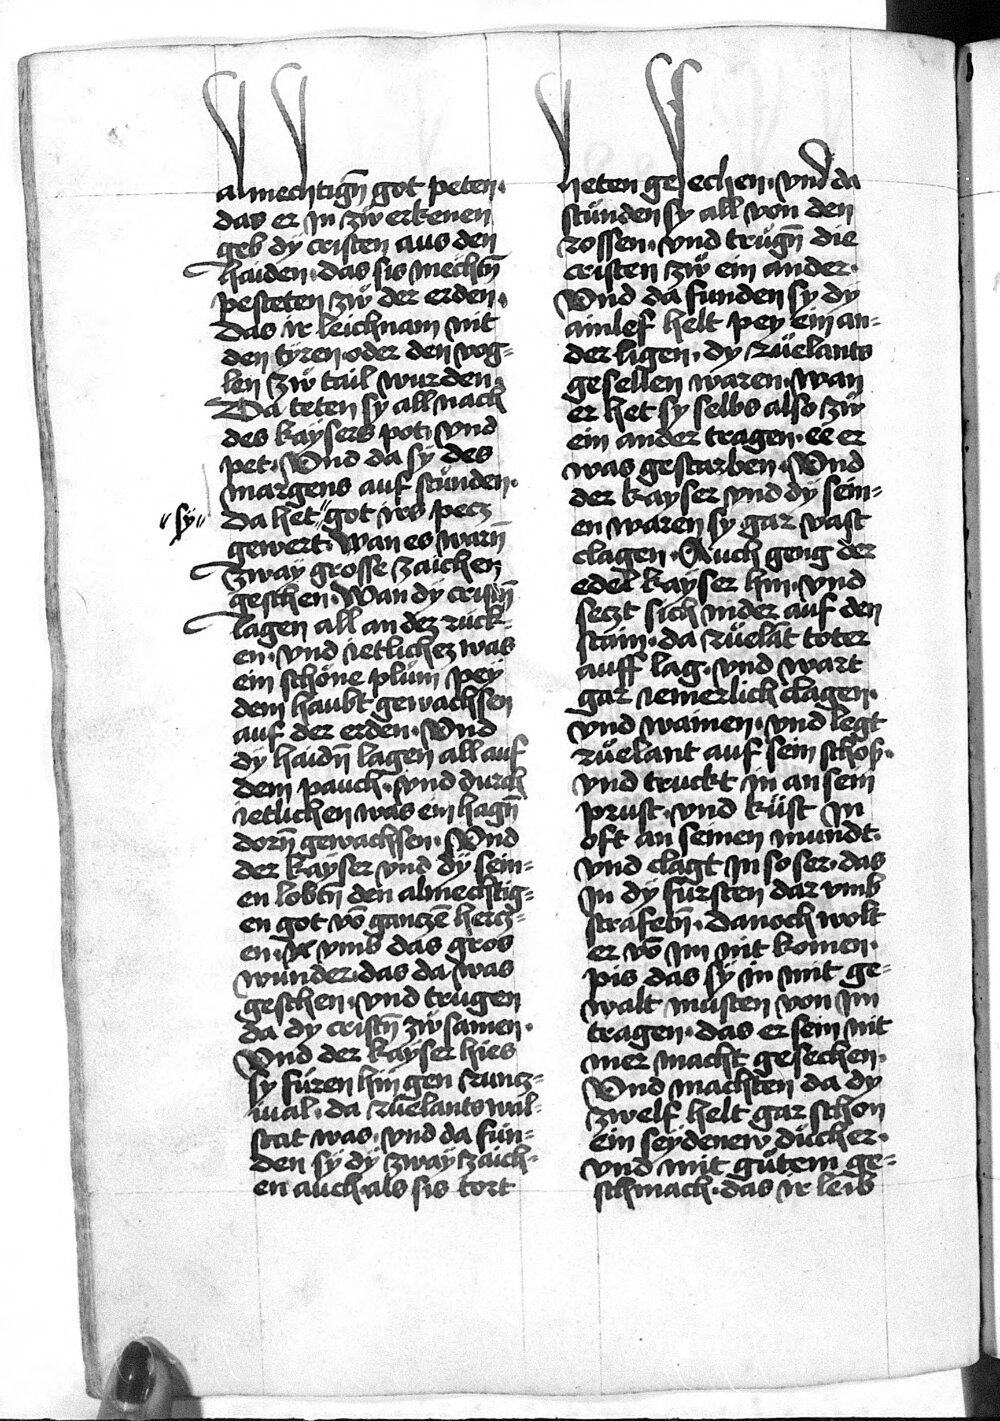 almechtign̄ got peten·
das er in zw̎ erkenen
geb dy cristen aus den
haiden· das sis mechtn̄
pesteten zw̎ der erden·
Das ir leichnam nit
den tyren oder den vog=
len zw̎ tail wurden·
Da teten sy all nach
des kaysers pot· vnd
pet· Vnd da sy des
margens auf stu̎nden·
"sy" da het" got irs petz
gewert· Wan es warn̄
zway grosse zaichen
geschen· Wan dy cristn̄
lagen all an dez ruck=
en· vnd ietlichez was
ein schöne plu̎m pey
dem haubt gewachsen
auf der erden· Vnd
dy haidn̄ lagen all auf
dem pauch· vnd durch
ietlichen was ein hagn̄
dorn̄ gewachsen· Vnd
der kayser vnd dy sein=
en lobtn̄ den almechtig=
en got vō ganczē hercz=
en· vmb das gros
wunder· das da was
geschen· vnd trugen
da dy cristn̄ zw̎samen·
Vnd der kayser hies
sy füren hin gen runcz=
iual· da ru̎elants wal=
stat was· vnd da fun=
den sy dy zway zaich=
en auch als sis tort
heten gesechen· vnd da
stu̎nden sy all von den
rossen· vnd trugn̄ die
cristen zw̎ ein ander·
Vnd da funden sy dy
ainlef helt pey ein an=
der ligen· dy ru̎elants
gesellen waren· wan
er het sy selbs also zw̎
ein ander tragen· ee er
was gestarben· Vnd
der kayser vnd dy sein=
en waren sy gar vast
clagen· Auch geng der
edel kayser hin· vnd
seczt sich nider auf den
stain· da ru̎elāt toter
auff lag· vnd wart
gar iemerlich clagen·
vnd wainen· vnd legt
ru̎elant auf sein schoß·
vnd truckt in an sein
prust· vnd küst in
oft an seinen mundt·
vnd clagt in so ser· das
in dy fürsten dar vmb
strafetn̄· danoch wolt
er vō im nit komen·
pis das sy in mit ge=
walt musten von im
tragen· das er sein nit
mer macht gesechen·
Vnd machten da dy
zwelf helt gar schon
ein seydenew du̎cher·
vnd mit gu̎tem ge=
schmach· das ir leib